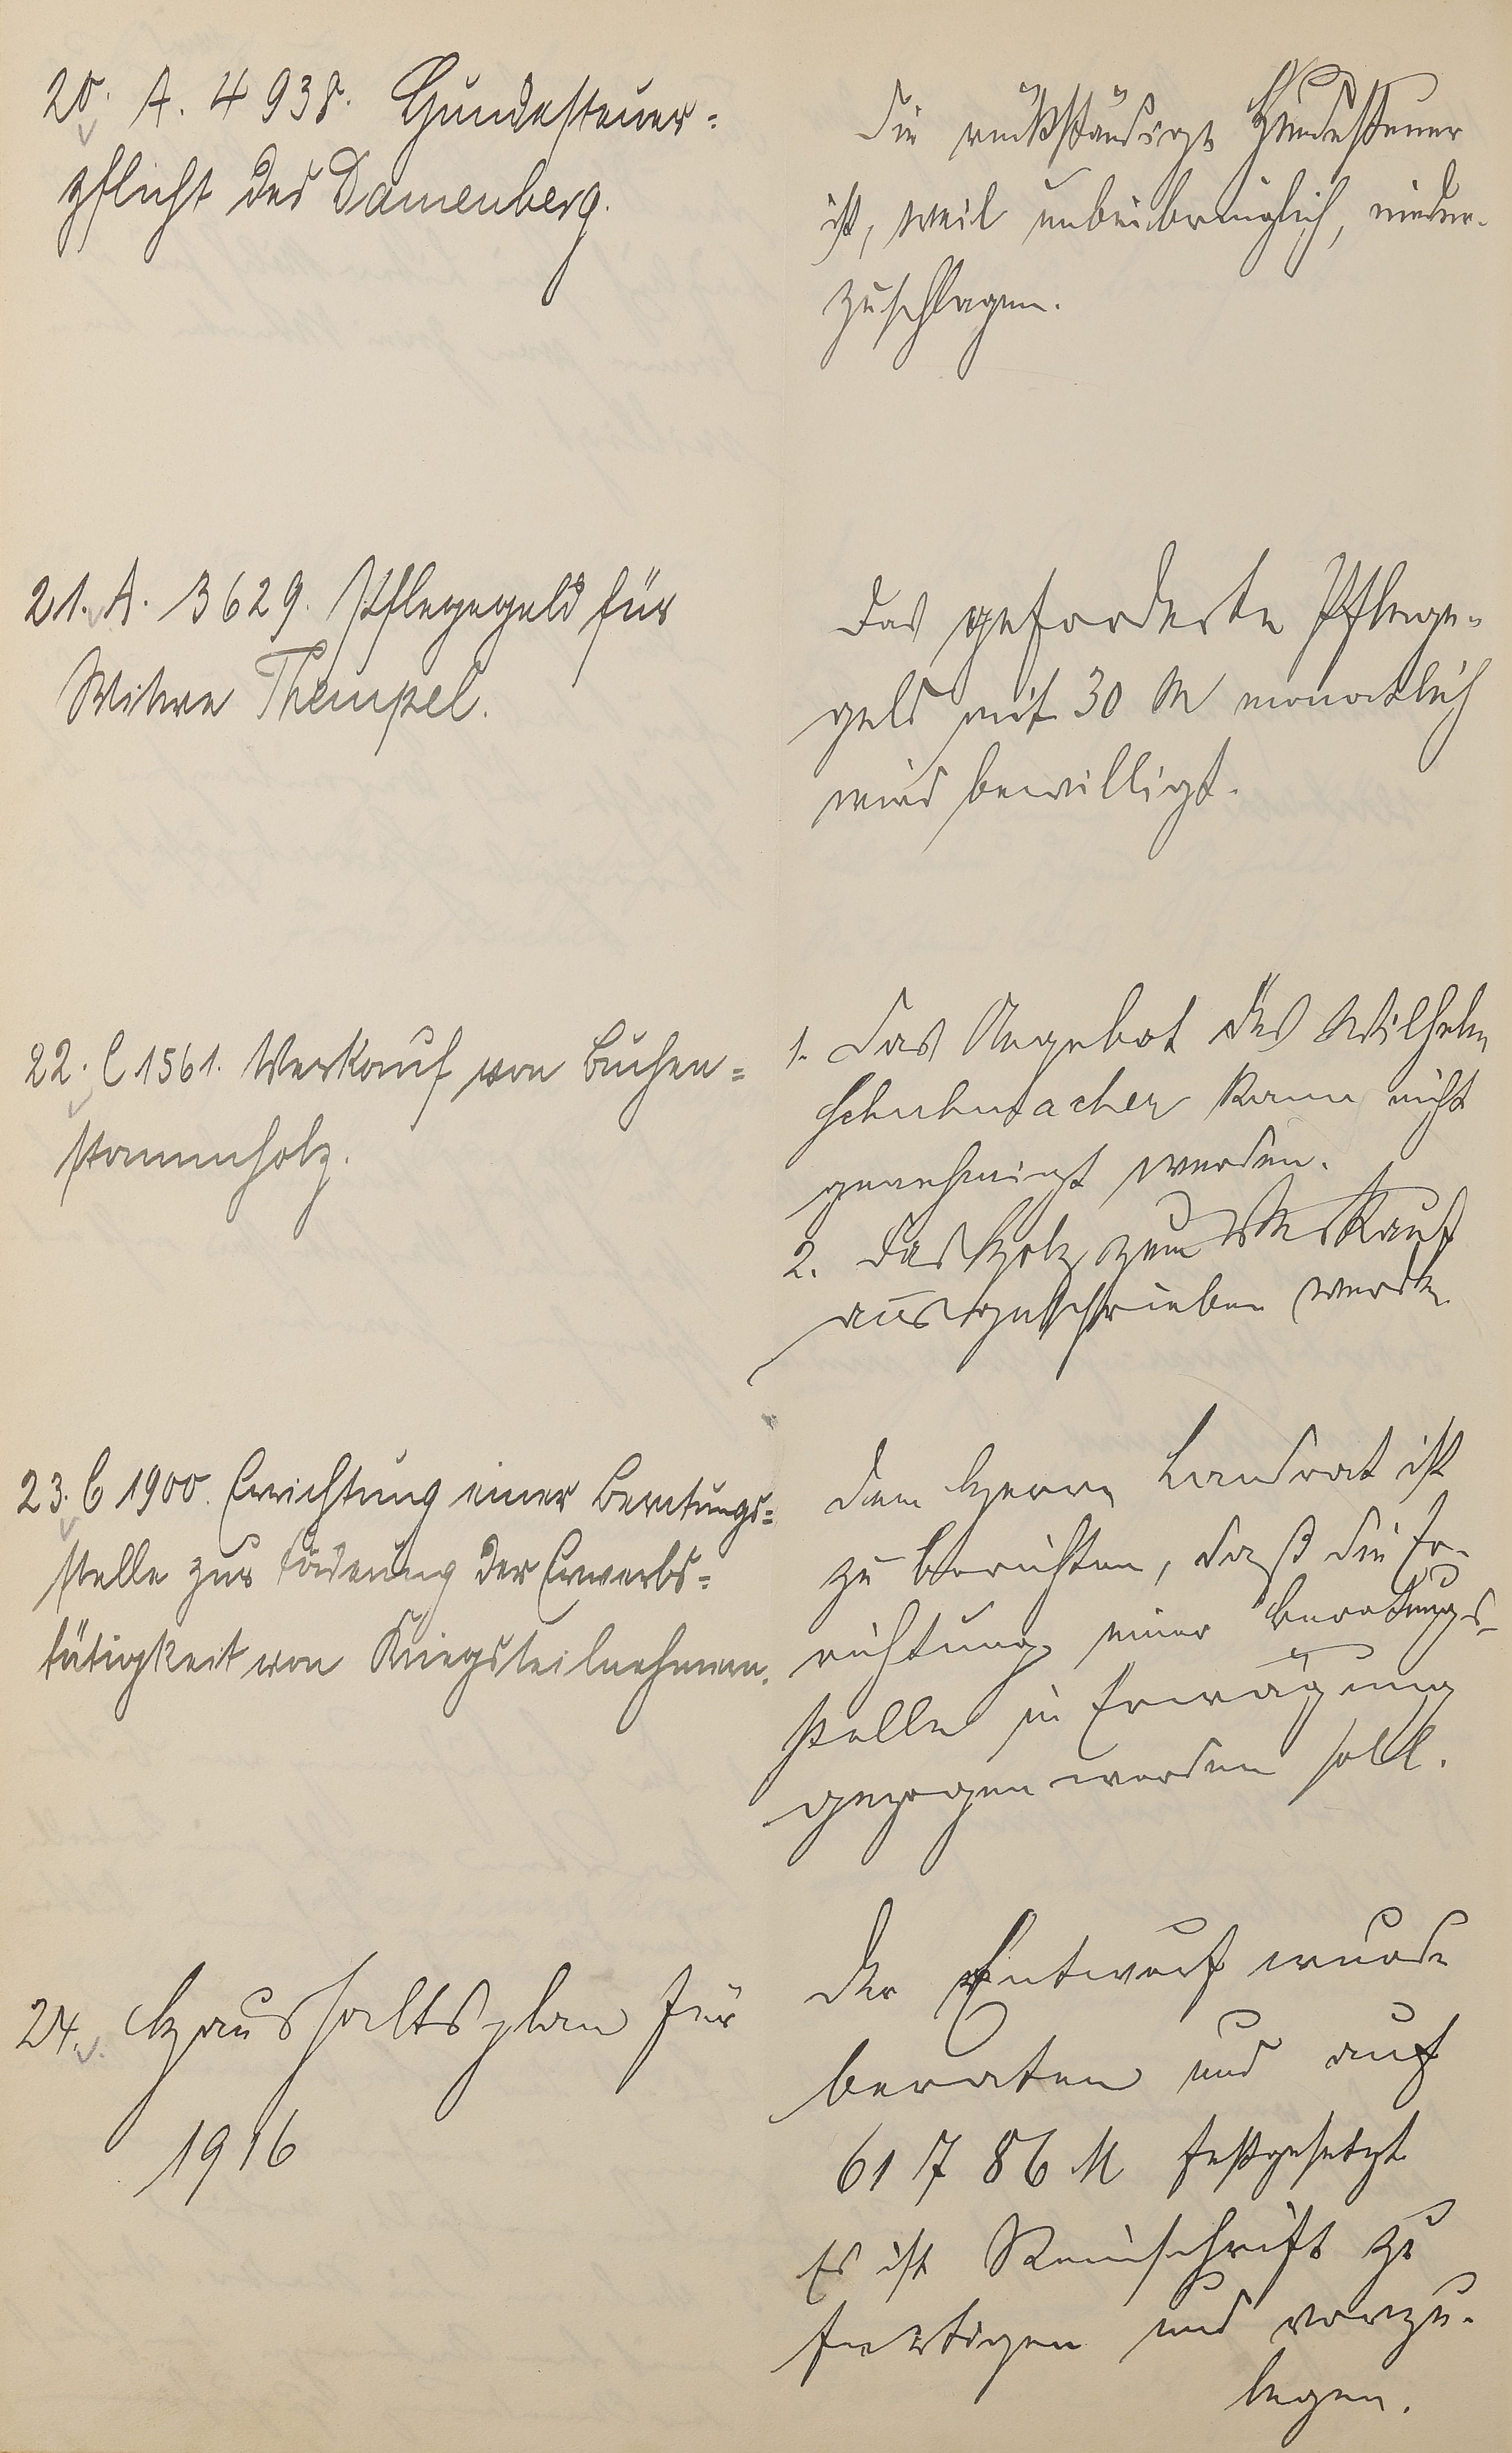 20. A. 4938. Hundesteuer=
pflicht des Damenberg.
Die rückständige Hundesteuer
ist, weil unbeibringlich, nieder-
zuschlagen.
21. A. 3629. Pflegegeld für
Witwe Thempel.
Das geforderte Pflege-
geld mit 30 M monatlich
wird bewilligt.
22. C 1561. Verkauf von Buchen=
stammholz.
1. Das Angebot des Wilhelm
Schuhmacher kann nicht
genehmigt werden.
2. Das Holz zum Verkauf
ausgeschrieben werde.
23. C 1900. Errichtung einer Beratungs=
stelle zur Föderung der Erwerbs=
tätigkeit von Kriegsteilnehmern.
Dem Herrn Landrat ist
zu berichten, daß die Er-
richtung einer Beratungs-
stelle in Erwägung
gezogen werden soll.
24. Haushaltsplan für
1916
Der Entwurf wurde
beraten und auf
61786 M festgesetzt
Es ist Reinschrift zu
fertigen und vorzu-
legen.